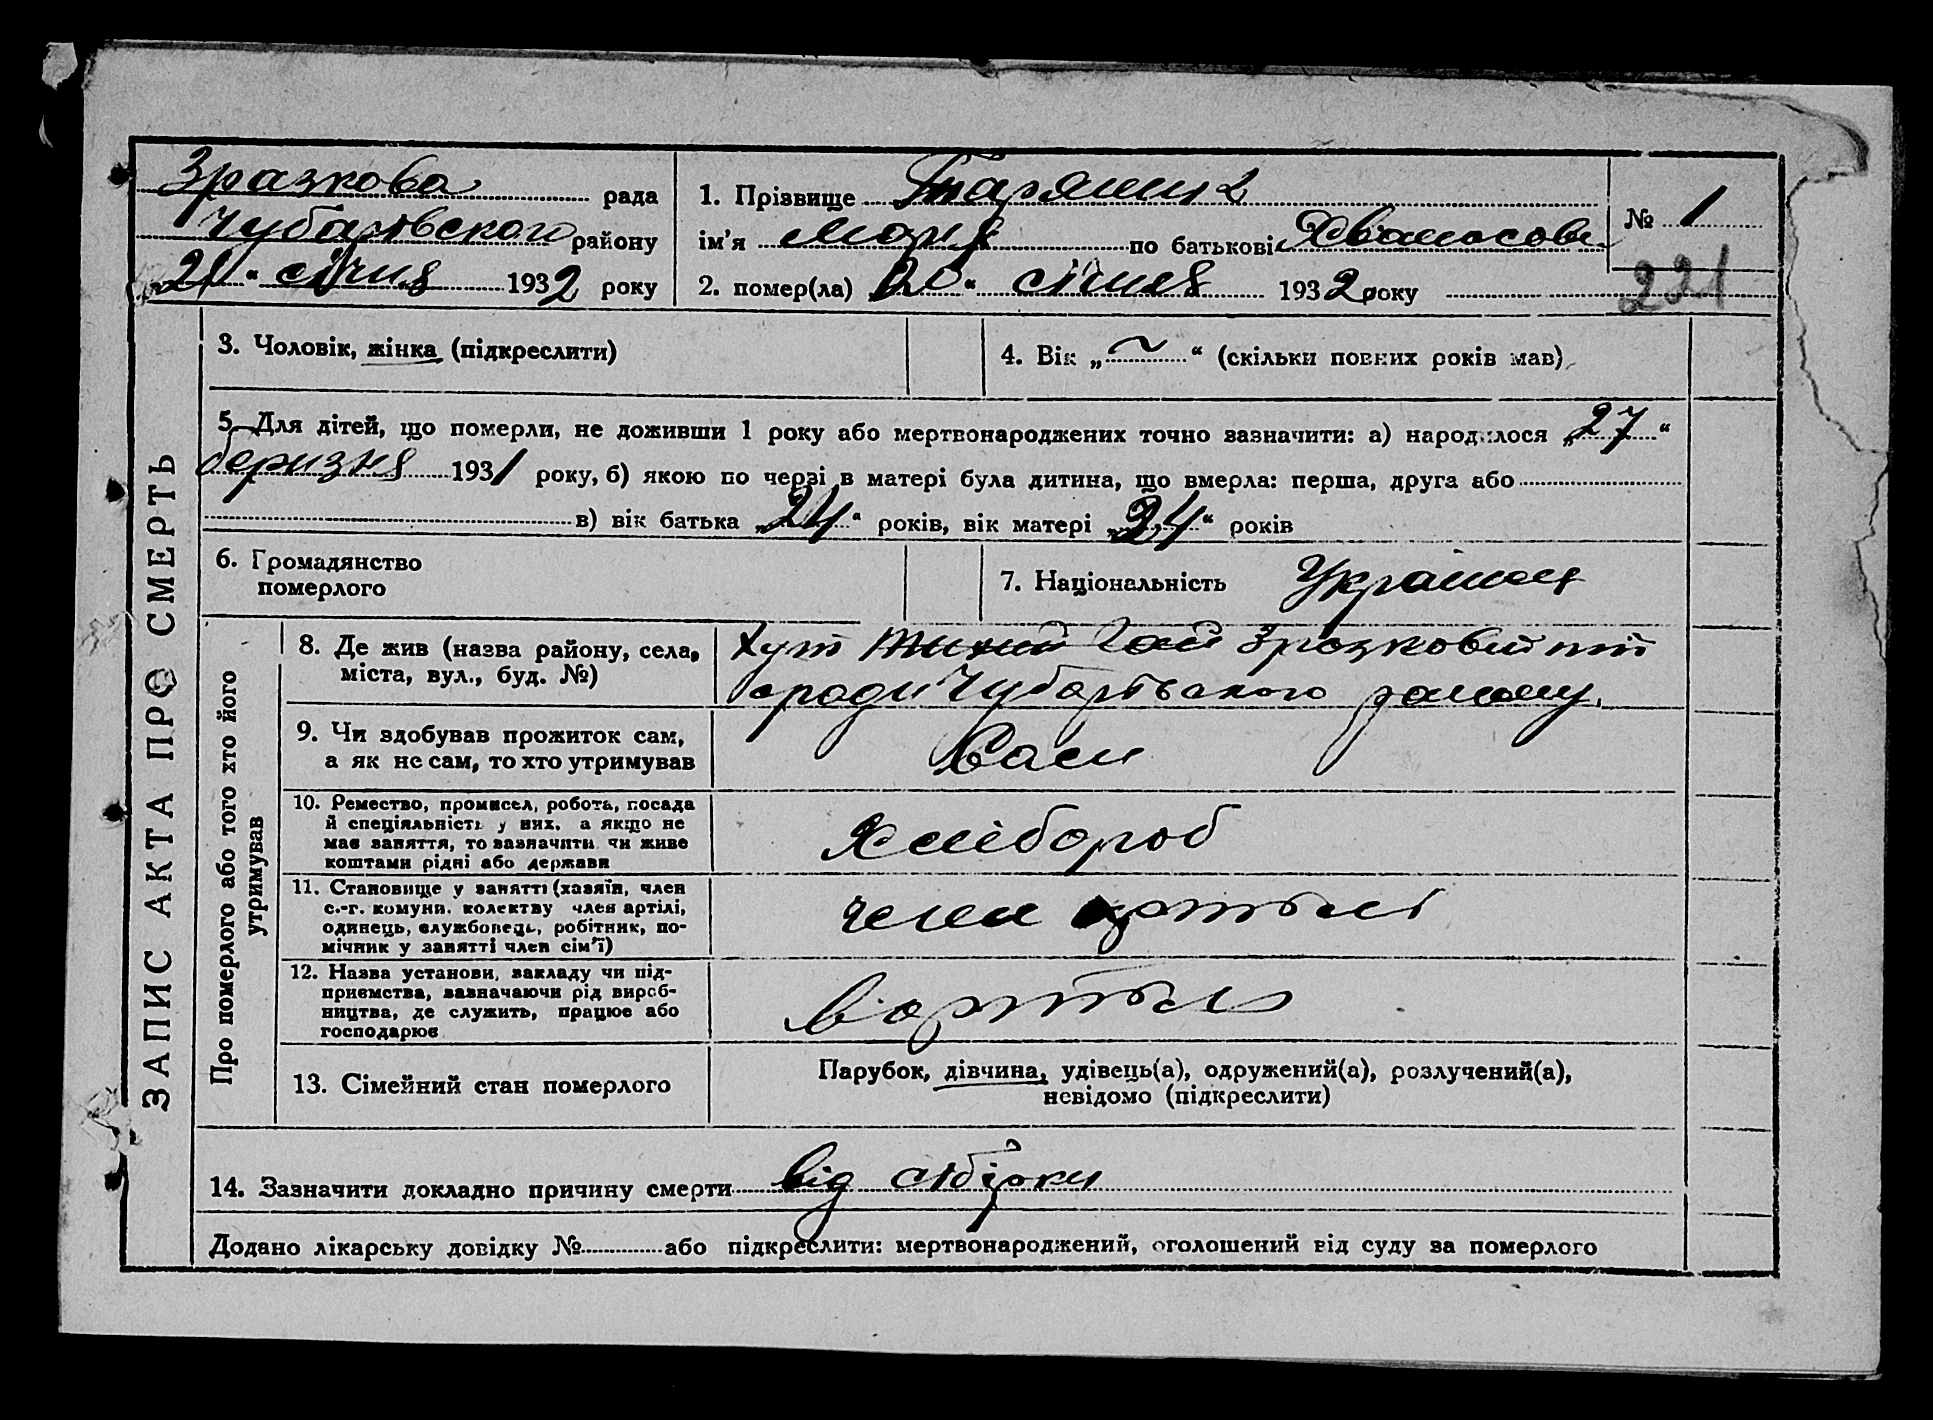 Зразкова рада
Чубарівського району
„21“ січня 1932 року
1. Прізвище
ім’я Марія по батькові
2. помер(ла) „20“ січня 1932 року
№ 1
221
ЗАПИС АКТА ПРО СМЕРТЬ
3. Чоловік, жінка (підкреслити)
4. Вік „~“ (скільки повних років мав)
5. Для дітей, що померли, не доживши 1 року або мертвонароджених точно зазначити: а) народилося „27“
березня 1931 року, б) якою по черзі в матері була дитина, що вмерла: перша, друга або
в) вік батька „24“ років, вік матері „24“ років
6. Громадянство
померлого
7. Національність
Про померлого або того хто його
утримував
8. Де жив (назва району, села,
міста, вул., буд. №)
Хут Тихий Гай Зразковий
ради Чубарівського району.
9. Чи здобував прожиток сам,
а як не сам, то хто утримував
10. Ремество, промисел, робота, посада
й спеціяльність у них, а якщо не
має заняття, то зазначити чи живе
коштами рідні або держави
Хлібороб
11. Становище у занятті (хазяїн, член
с.-г. комуни, колективу член артілі,
одинець, службовець, робітник, по-
мічник у занятті член сім’ї)
член
12. Назва установи, закладу чи під-
приємства, зазначаючи рід вироб-
ництва, де служить, працює або
господарює
13. Сімейний стан померлого
Парубок, дівчина, удівець(а), одружений(а), розлучений(а),
невідомо (підкреслити)
14. Зазначити докладно причину смерти від
Додано лікарську довідку № або підкреслити: мертвонароджений, оголошений від суду за померлого